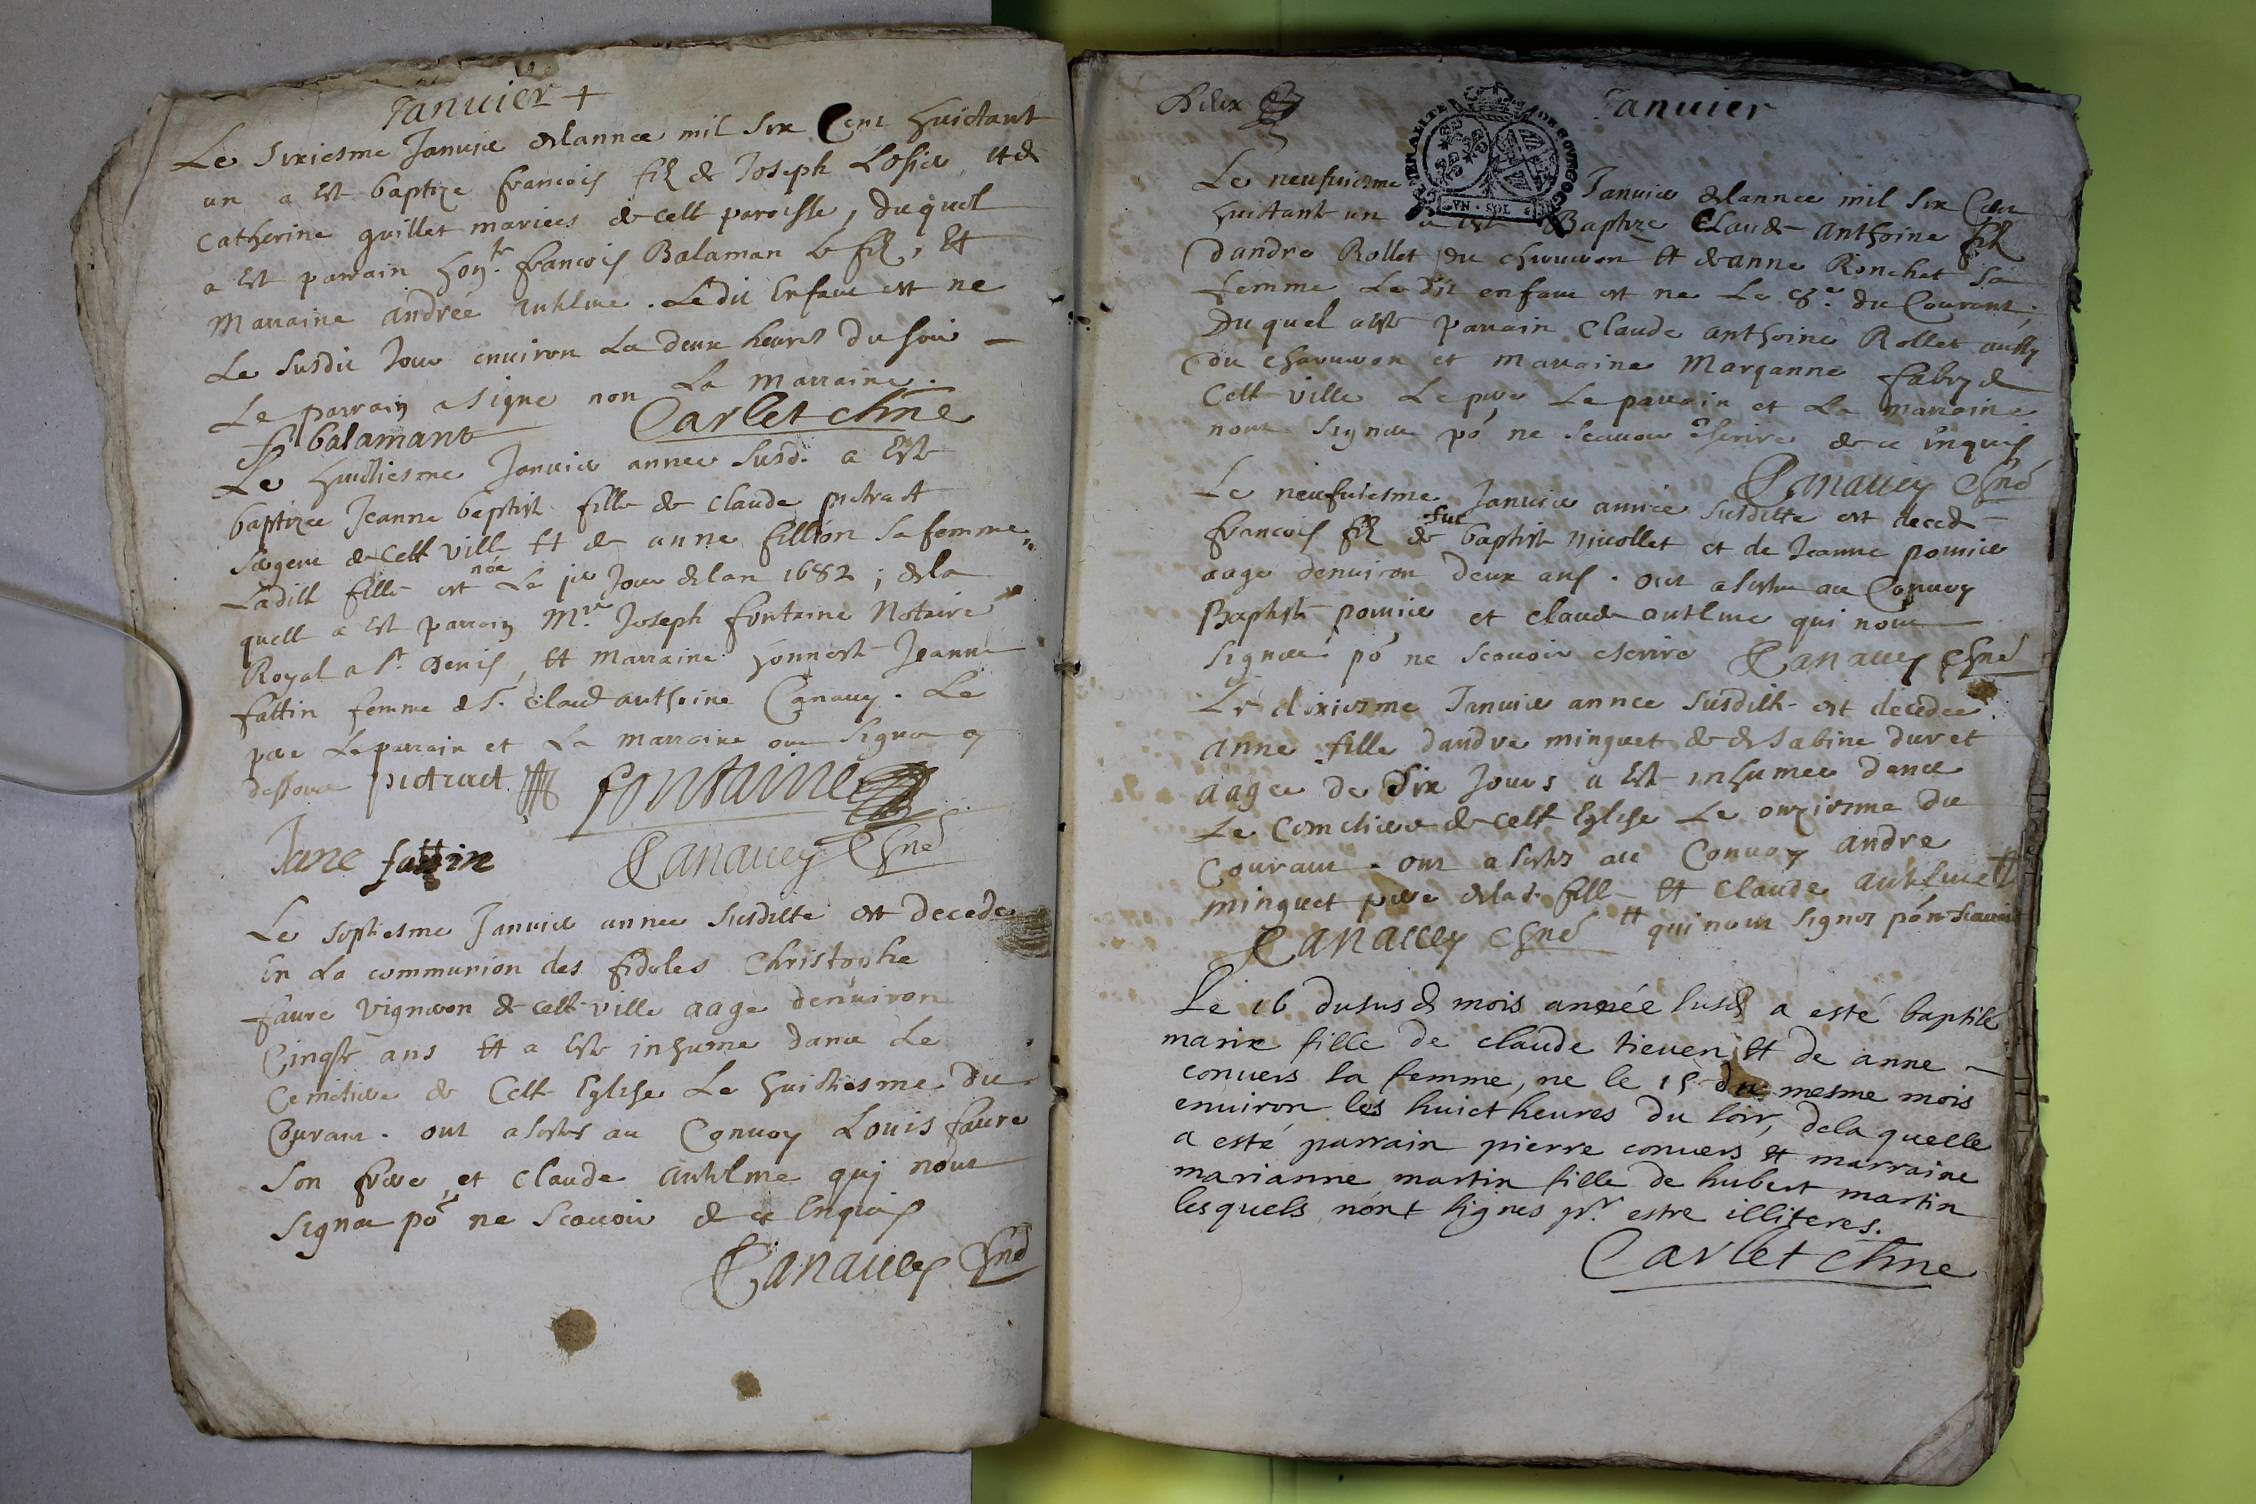 Januier +
Le sixiesme Januier de lannee mil six Cent huictant
un a esté baptize francois filz de Joseph et de
Catherine guillet mariees de cette paroisse, duquel
a esté parrain hon.te francois Balaman le filz, et
Marraine andrée . Ledit Enfant est ne
Le susdit Jour enuiron La deux heures du soir
Le parrain a signe non La marraine.
f balamant Carlet chne
Le huictiesme Januier annee susd. a esté
baptizee Jeanne baptiste fille de claude pictrait
de cette ville et de anne fillion sa femme
Ladite fille est née Le jer Jour de lan 1682 ; de la
quelle a esté parrain Mre Joseph fontaine Notaire
Royal a St. Denis, et marraine honneste Jeanne
fattin femme de Sr. claude anthoine Canauey . Le
pere Le parrain et La marraine ont signe cy
dessous pictrait fontaine
Jane fattin Canauey Chne
Le septiesme Januier annee susditte est decede
En La communion des fideles Christophe
faure vigneron de cette ville aagé denuiron
Cinqte ans et a esté inhume dans Le
Cemetiere de Cette Eglise Le huictiesme du
Courant . ont asistes au Conuoy Louis faure
son frere et claude anthelme qui nont
signe po.r ne scauoir de ce Enquis
Canauey Chne
Deux
GENERALITE DE BOVRGOGNE
VN · SOL
Januier
Le neufuiesme Januier de lannee mil six Cent
huictant un a esté Baptize Claude anthoine filz
dandre Rollet du et de anne Ronchet sa
femme Le dit enfant est ne Le 8e. du Courant ;
Duquel a esté parrain Claude anthoine Rollet aussy
du et marraine Marganne fabry de
Cette ville Le pere Le parrain et La marraine
nont signe po.r ne scauoir escrire de ce Enquis
Canauey Chne
Le neufuiesme Januier annee susditte est decede
francois filz de feu baptiste nicollet et de Jeanne
aage denuiron deux ans . ont asistes au Conuoy
Baptiste et claude anthelme qui nont
signe po.r ne scauoir escrire Canauey Chne
Le dixiesme Januier annee susditte est decedee
anne fille dandre minguet & de sabine duret
aagee de Dix Jours a esté inhumee dans
Le Cemetiere de cette Eglise Le onziesme du
Courant . ont asistes au Conuoy andre
minguet pere de lad. fille et claude anthelme ++
Canauey Chne ++ qui nont signes po.r ne scauoir
Le 16 du susd mois année susd a esté baptisé
marie fille de claude tieuen et de anne
conuers sa femme, ne le 15 du mesme mois
enuiron les huict heures du soir, dela quelle
a esté parrain pierre conuers et marraine
marianne martin fille de hubert martin
lesquels n'ont signes pr. estre illiteres.
Carlet chne